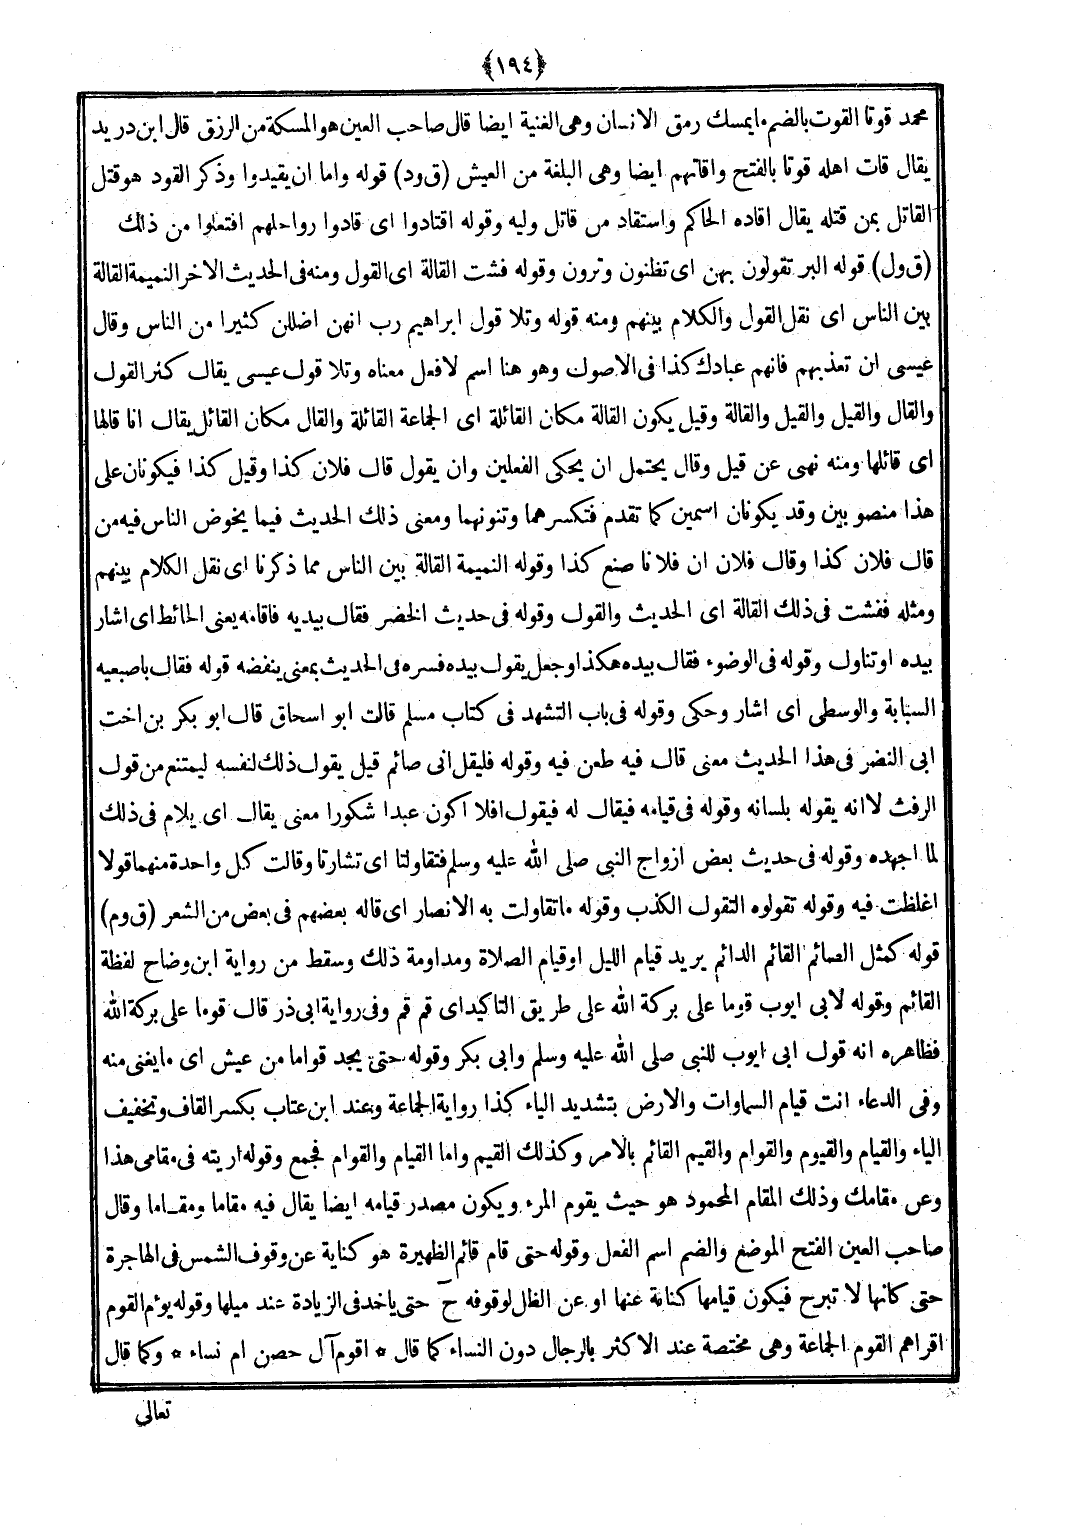 ﴿١٩٤﴾
محمد قوتا القوت بالضم ما يمسك رمق الانسان وهى الغنية ايضا قال صاحب العين هو المسكة من الرزق قال ابن دريد
يقال قات اهله قوتا بالفتح واقاتهم ايضا وهى البلغة من العيش (ق ود) قوله واما ان يقيدوا وذكر القود هو قتل
القاتل بمن قتله يقال اقاده الحاكم واستقاد من قاتل وليه وقوله اقتادوا اى قادوا رواحلهم افتعلوا من ذلك
(ق ول) قوله البر تقولون بهن اى تظنون وترون وقوله فشت القالة اى القول ومنه فى الحديث الاخر النميمة القالة
بين الناس اى نقل القول والكلام بينهم ومنه قوله وتلا قول ابراهيم رب انهن اضللن كثيرا من الناس وقال
عيسى ان تعذبهم فانهم عبادك كذا فى الاصول وهو هنا اسم لا فعل معناه وتلا قول عيسى يقال كثر القول
والقال والقيل والقيل والقالة وقيل يكون القالة مكان القائلة اى الجماعة القائلة والقال مكان القائل يقال انا قالها
اى قائلها ومنه نهى عن قيل وقال يحتمل ان يحكى الفعلين وان يقول قال فلان كذا وقيل كذا فيكونان على
هذا منصو بين وقد يكونان اسمين كما تقدم فتكسرهما وتنونهما ومعنى ذلك الحديث فيما يخوض الناس فيه من
قال فلان كذا وقال فلان ان فلانا صنع كذا وقوله النميمة القالة بين الناس مما ذكرنا اى نقل الكلام بينهم
ومثله ففشت فى ذلك القالة اى الحديث والقول وقوله فى حديث الخضر فقال بيديه فاقامه يعنى الحائط اى اشار
بيده او تناول وقوله فى الوضوء فقال بيده هكذا وجعل يقول بيده فسره فى الحديث بمعنى ينفضه قوله فقال باصبعيه
السبابة والوسطى اى اشار وحكى وقوله فى باب التشهد فى كتاب مسلم قالت ابو اسحاق قال ابو بكر بن اخت
ابى النضر فى هذا الحديث معنى قال فيه طعن فيه وقوله فليقل انى صائم قيل يقول ذلك لنفسه ليمتنع من قول
الرفث لا انه يقوله بلسانه وقوله فى قيامه فيقال له فيقول افلا اكون عبدا شكورا معنى يقال اى يلام فى ذلك
لما اجهده وقوله فى حديث بعض ازواج النبى صلى الله عليه وسلم فتقاولتا اى تشارتا وقالت كل واحدة منهما قولا
اغلظت فيه وقوله تقولوه التقول الكذب وقوله ما تقاولت به الانصار اى قاله بعضهم فى بعض من الشعر (ق وم)
قوله كمثل الصائم القائم الدائم يريد قيام الليل او قيام الصلاة ومداومة ذلك وسقط من رواية ابن وضاح لفظة
القائم وقوله لابى ايوب قوما على بركة الله على طريق التاكيد اى قم قم وفى رواية ابى ذر قال قوما على بركة الله
فظاهره انه قول ابى ايوب للنبى صلى الله عليه وسلم وابى بكر وقوله حتى يجد قواما من عيش اى ما يغنى منه
وفى الدعاء انت قيام السماوات والارض بتشديد الياء كذا رواية الجماعة وعند ابن عتاب بكسر القاف وتخفيف
الياء والقيام والقيوم والقوام والقيم القائم بالامر وكذلك القيم واما القيام والقوام فجمع وقوله اريته فى مقامى هذا
وعن مقامك وذلك المقام المحمود هو حيث يقوم المرء ويكون مصدر قيامه ايضا يقال فيه مقاما ومقاما وقال
صاحب العين الفتح الموضع والضم اسم الفعل وقوله حتى قام قائم الظهيرة هو كناية عن وقوف الشمس فى الهاجرة
حتى كانها لا تبرح فيكون قيامها كناية عنها او عن الظل لوقوفه ح حتى ياخد فى الزيادة عند ميلها وقوله يوم القوم
اقراهم القوم الجماعة وهى مختصة عند الاكثر بالرجال دون النساء كما قال * اقوم آل حصن ام نساء * وكما قال
تعالى